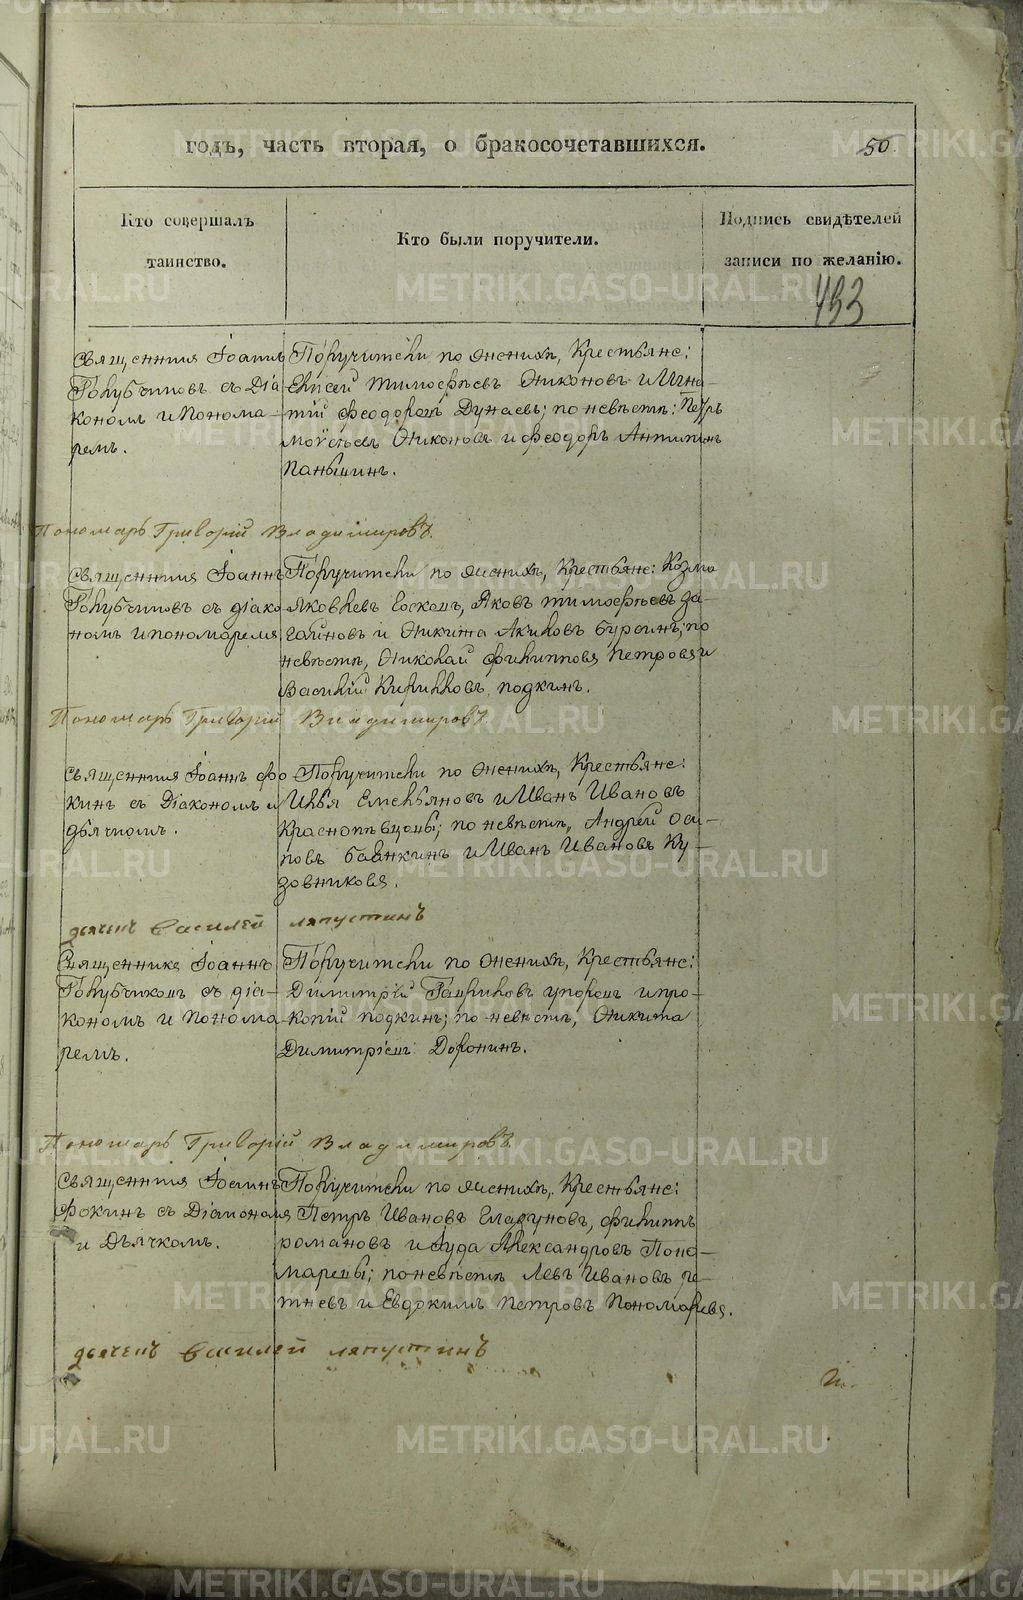 годъ, часть вторая, о бракосочетавшихся.
50
Кто совершалъ таинство.
Кто были поручители.
Подпись свидѣтелей записи по желанію.
453
Священникъ Іоаннъ
Голубчиковъ съ Діа
кономъ и Понома-
ремъ.
Поручители по женихѣ, Крестьяне:
Елисей Тимофѣевъ Никоновъ и Игна-
тій Феодоровъ Дунаевъ; по невѣстѣ: Петръ
Никоновъ и Феодоръ Антипинъ
Паньшинъ.
Пономарь Григорій Владимировъ.
Священникъ Іоаннъ
Голубчиковъ съ діако
номъ и пономаремъ
Поручители по женихѣ, Крестьяне: Козма
Яковлевъ Яковъ Тимофѣевъ За-
гайновъ и Никита Бурсинъ; по
невѣстѣ, Николай Филипповъ Петровъ и
Василій Кирилловъ Подкинъ.
Пономарь Григорій Владимировъ
Священникъ Іоаннъ Фо
кинъ съ Діакономъ и
дьячкомъ.
Поручители по женихѣ, Крестьяне:
Илья Емельяновъ и Иванъ Ивановъ
Краснопѣвцовы; по невѣстѣ, Андрей Оси-
повъ Баянкинъ и Иванъ Ивановъ Ку-
зовниковъ.
дьячекъ Василей Ляпустинъ
Священникъ Іоаннъ
Голубчиковъ съ діа-
кономъ и Понома
ремъ.
Поручители по женихѣ, Крестьяне:
Димитрій Гавриловъ Упоровъ и Про-
копій Подкинъ; по невѣстѣ, Никита
Димитріевъ Доронинъ.
Пономарь Григорій Владимировъ.
Священникъ Іоаннъ
Фокинъ съ Діакономъ
и Дьячкомъ.
Поручители по женихѣ, Крестьяне:
Петръ Ивановъ Елагуновъ, Филиппъ
Романовъ и Іуда Александровъ Поно-
маревы; по невѣстѣ Левъ Ивановъ Ре-
тневъ и Евдокимъ Петровъ Пономаревъ.
дьячекъ Василей Ляпустинъ
METRIKI.GASO-URAL.RU